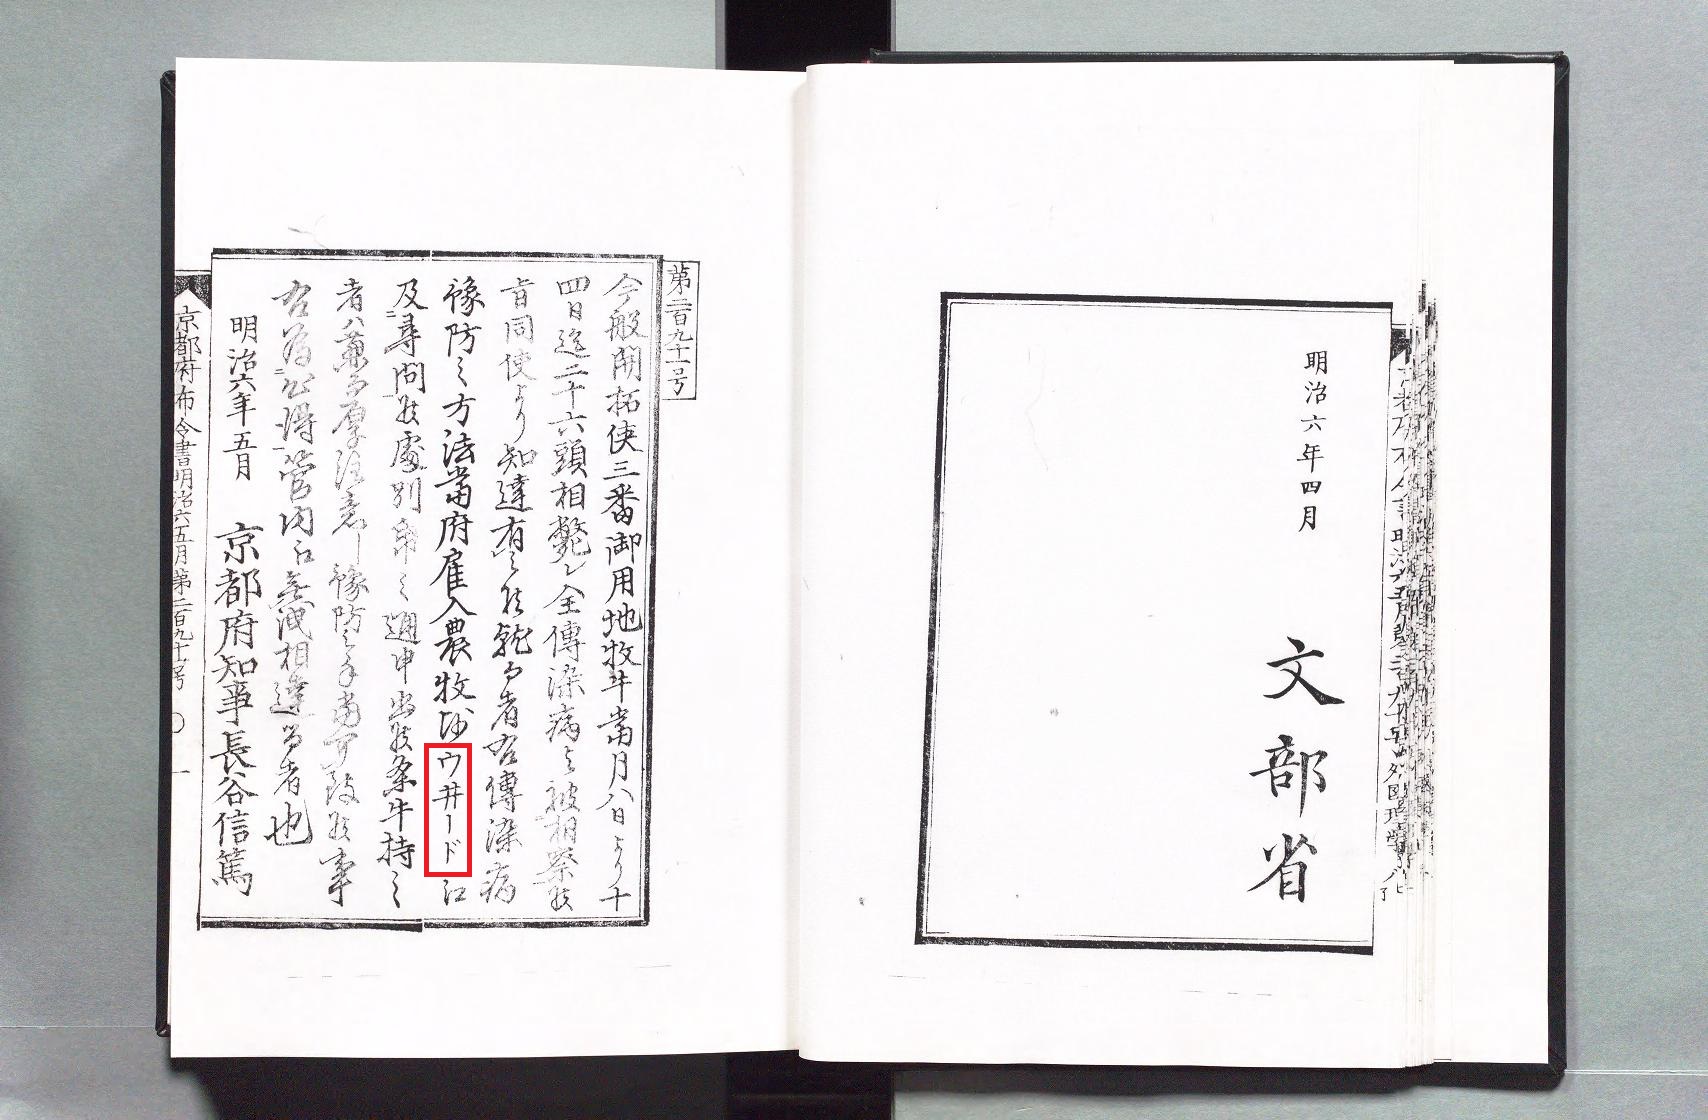 明治六年四月
文部省
第二百九十一号
今般開拓使三番御用地牧牛当月八日より十
四日迄二十六頭相斃レ全傳染病と被相察候
旨同使より知達有之候就而者右傳染病
豫防之方法當府雇入農牧師ウ井ード江
及尋問候處別帋之通申出候条牛持之
者ハ兼而厚注意し豫防之手當可致候事
右為心得管内江無洩相達る者也
明治六年五月
京都府知事長谷信篤
京都府布令書明治六五月第二百九十一号
一